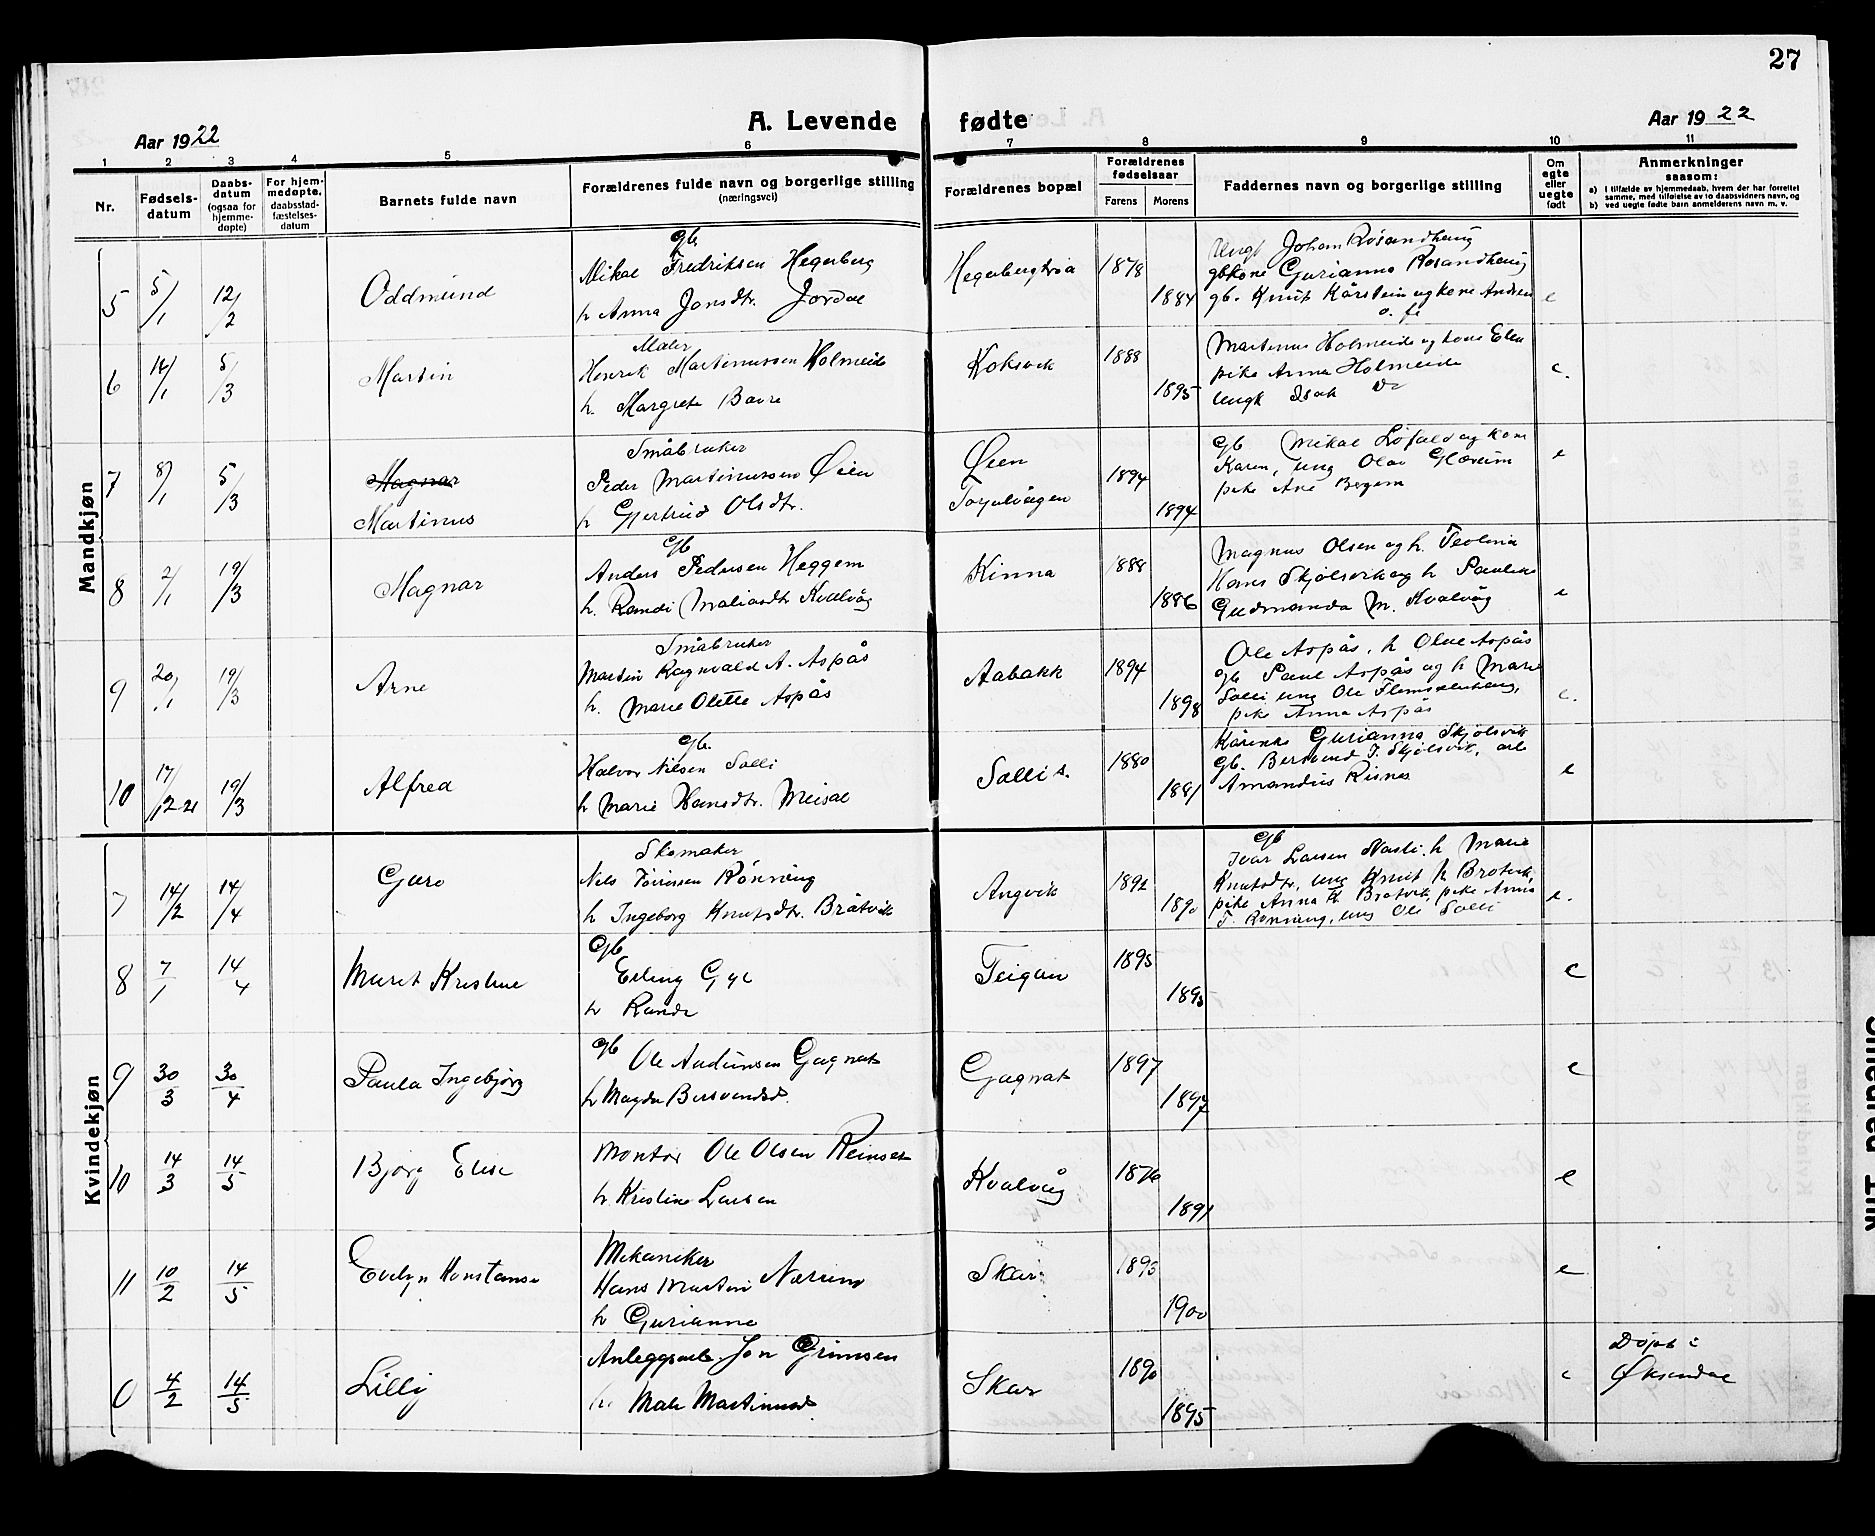 27
Aar 1922
A. Levende fødte
Aar 1922
1 2 3 4 5 6 7 8 9 10 11
Nr.
Fødsels-
datum
Daabs-
datum
(ogsaa for
hjemme-
døpte)
For hjem-
medøpte.
daabsstad-
fæstelses-
datum
Barnets fulde navn
Forældrenes fulde navn og borgerlige stilling
(næringsvei)
Forældrenes bopæl
Forældrenes
fødselsaar
Farens Morens
Faddernes navn og borgerlige stilling
Om
egte
eller
uegte
født
Anmerkninger
saasom:
a) I tilfælde av hjemmedaab, hvem der har forrettet
samme, med tilføielse av to daabsvidners navn, og
b) ved uegte fødte barn anmelderens navn m. v.
Mandkjøn
5 5/1 12/2 Oddmund
gb.
Mikal Fredriksen Hegerberg
h Anna Jonsdtr. Jordal
Hegerbergtrøa 1878 1884
Ungk Johan Rosandhaug
gbkone Gurianna Rosandhaug
gb. Knut Kårstein og kone Andrea
o. fl
e
6 14/1 5/3 Martin
Maler
Henrik Martinussen Holmeide
h. Margrete Bavre
Koksvik 1888 1895
Martinus Holmeide og kone Elen
pike Anna Holmeide
Ungk Isak Do
e.
7 8/1 5/3 Magnar
Martinus
Småbruker
Peder Martinussen Øien
h Gjertrud Olsdtr.
Øien
Torjulvågen 1894 1894
Gb Mikal Lofald og kone
Karen, ung Olav Glærum
pike Ane Bergem
e
8 2/1 19/3 Magnar
Gb
Anders Pedersen Heggem
h. Randi Maliasdtr Kvalvåg
Kinna 1888 1886
Magnus Olsen og h. Teolina
Hans Skjølsvik og h Pauline
Gudmunda M. Kvalvåg
e
9 20/1 19/3 Arne
Småbruker
Martin Ragnvald A. Aspås
h. Marie Olette Aspås
Aabakk 1894 1898
Ole Aspås, h Olue Aspås
gb Paul Aspås og h Marie
Solli ung Ole
pike Anna Aspås
e.
10 17/12 21 19/3 Alfred
Gb.
Halvor Nilsen Solli
h Marie Hansdtr. Meisal
Solli s. 1880 1881
Kårenke Gurianna Skjølsvik
gb. Bersvend J. Skjølsvik, arb
Amandus Risnes
e
Kvindekjøn
7 14/2 14/4 Guro
Skomaker
Nils Rønning
h Ingeborg Knutsdtr. Bråtvik
Angvik 1892 1890
Gb
Ivar Larsen Nasti. h Marie
Knutsdtr, ung Knut K Brotvik,
pike Anna K Brotvik, pike Anna
T. Rønning, ung Ole Solli
e.
8 7/1 14/4 Maret Kristine
Gb
Erling Gyl
h Randi
Teigen 1895 1895
e
9 30/3 30/4 Paula Ingebjørg
gb Ole Audunsen Gagnat
h Magda Bersvendsd.
Gagnat 1897 1897
e
10 14/3 14/5 Bjørg Elise
Montør Ole Olsen Reinset
h. Kristine Larsen
Kvalvåg 1876 1891
e
11 10/2 14/5 Evelyn Konstanse
Mekaniker
Hans Martin Nærum
h Gurianna
Skar 1893 1900
e
4/2 14/5 Lilly
Anleggsarb. Jon Grimsen
h. Mali Martinusd
Skar 1890 1895
e
Døpt i
Øksendal